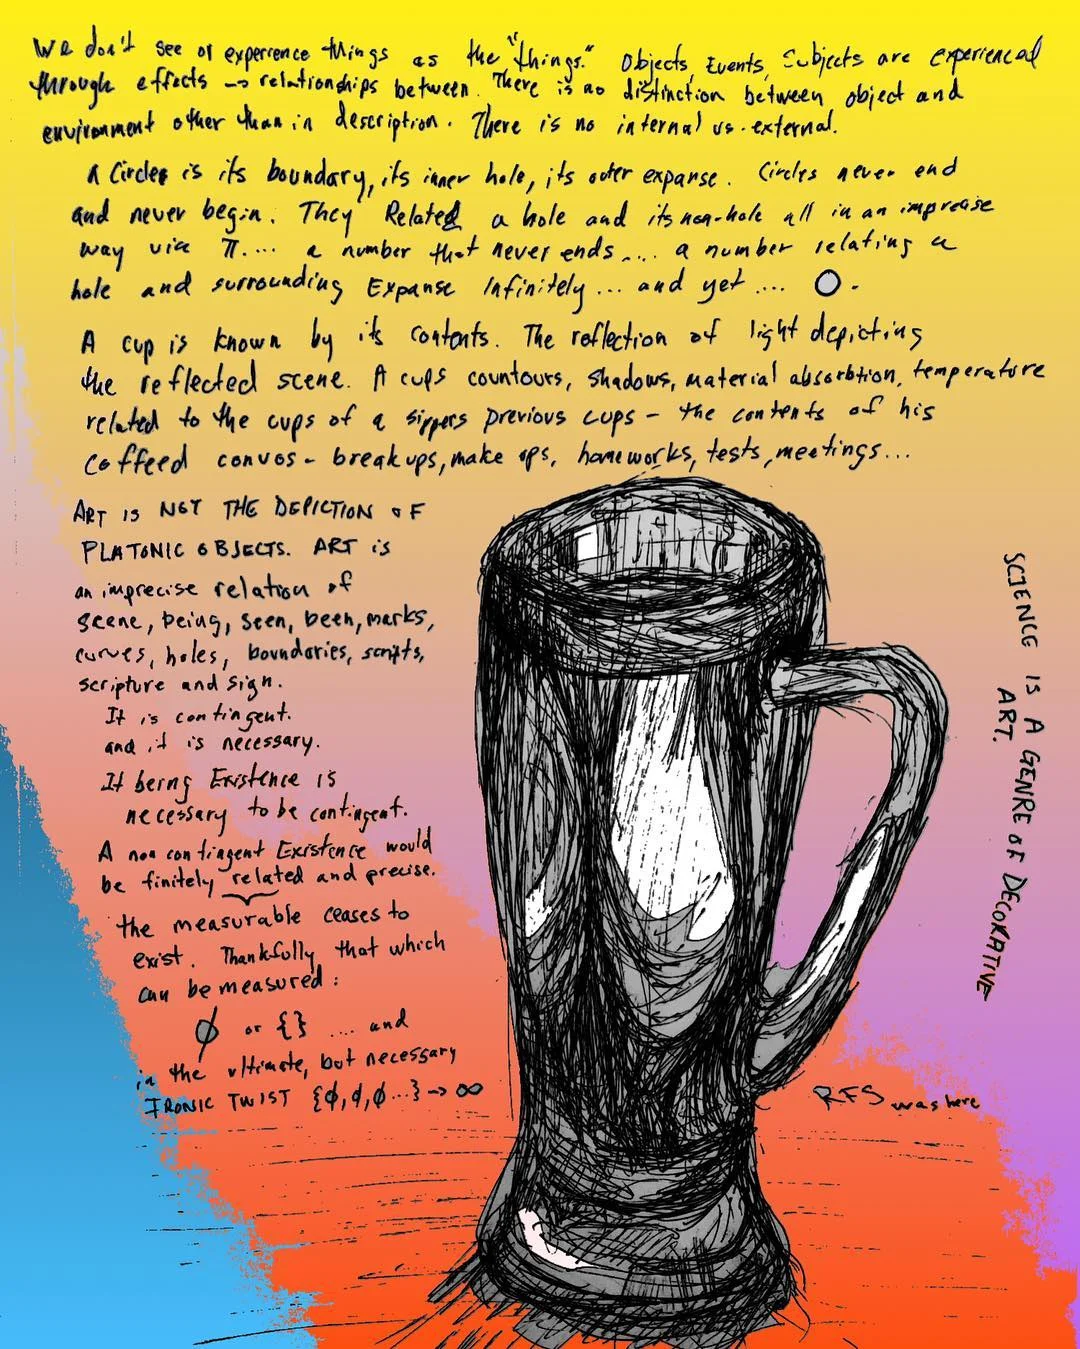 We don't see or experience things as the "things." Objects, Events, Subjects are experienced
through effects → relationships between. There is no distinction between object and
environment other than in description. There is no internal vs. external.
A Circles is its boundary, its inner hole, its outer expanse. Circles never end
and never begin. They Related a hole and its non-hole all in an imprecise
way via π.... a number that never ends.... a number relating a
hole and surrounding Expanse Infinitely... and yet .... O.
A cup is known by its contents. The reflection of light depicting
the reflected scene. A cups countours, shadows, material absorbtion, temperature
related to the cups of a sippers previous cups - the contents of his
coffeed convos - breakups, make ups, homeworks, tests, meetings...
ART IS NOT THE DEPICTION OF
PLATONIC OBJECTS. ART is
an imprecise relation of
scene, being, seen, been, marks,
curves, holes, boundaries, scripts,
scripture and sign.
It is contingent.
and it is necessary.
It being Existence is
necessary to be contingent.
A non contingent Existence would
be finitely related and precise.
the measurable ceases to
exist. Thankfully that which
can be measured:
∅ or {} .... and
in the ultimate, but necessary
IRONIC TWIST {∅,∅,∅...} → ∞
SCIENCE IS A GENRE OF DECORATIVE
ART.
RFS was here